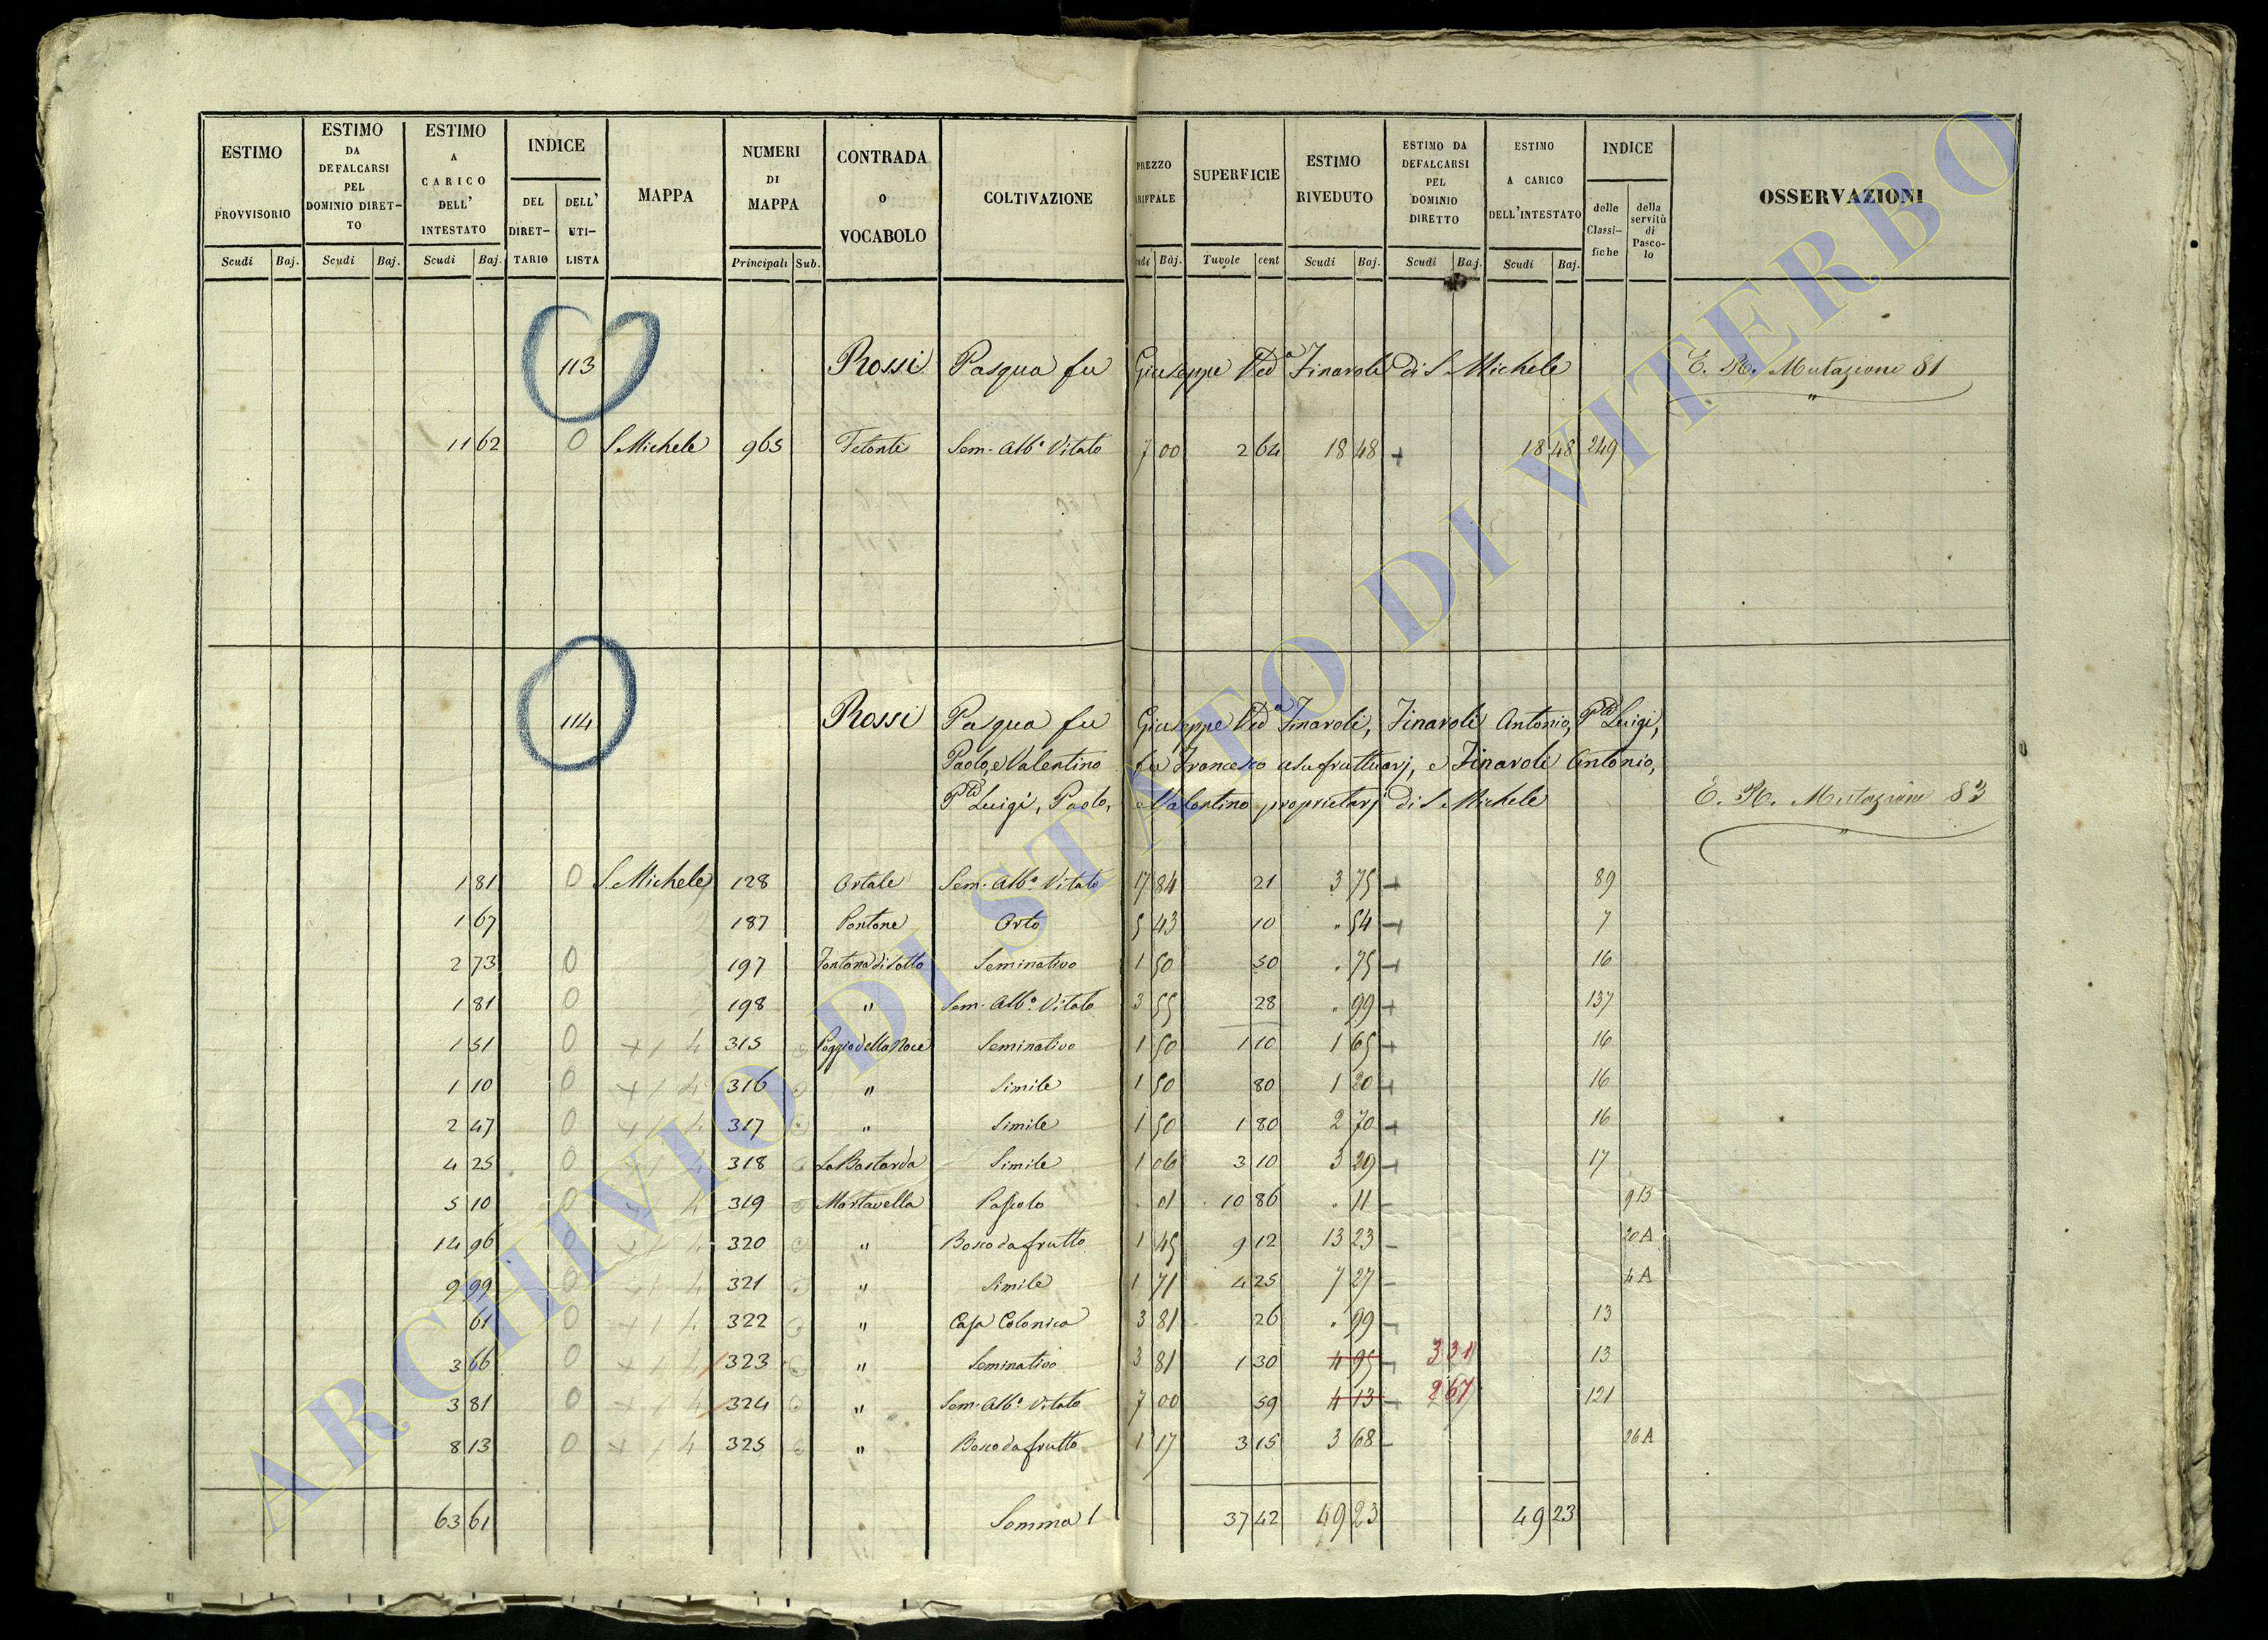 ESTIMO PROVVISORIO Scudi Baj.
ESTIMO DA DEFALCARSI PEL DOMINIO DIRET- TO Scudi Baj.
ESTIMO A CARICO DELL' INTESTATO Scudi Baj.
INDICE DEL DIRET- TARIO DELL' UTI- LISTA
MAPPA
NUMERI DI MAPPA Principali Sub.
CONTRADA O VOCABOLO
COLTIVAZIONE
PREZZO ARIFFALE udi Baj.
SUPERFICIE Tavole cent
ESTIMO RIVEDUTO Scudi Baj.
ESTIMO DA DEFALCARSI PEL DOMINIO DIRETTO Scudi Baj.
ESTIMO A CARICO DELL'INTESTATO Scudi Baj.
INDICE delle Classi- fiche della servitù di Pasco- lo
OSSERVAZIONI
113 Rossi Pasqua fu Giuseppe Ved.a Finaroli di S. Michele E. R. Mutazione 81
11 62 0 S. Michele 965 Sem. Alb.o Vitato 7 00 2 64 18 48 + 18 48 249
114 Rossi Pasqua fu Giuseppe Ved.a Finaroli, Finaroli Antonio, Luigi,
Paolo, e Valentino fu Francesco usufruttuarj, e Finaroli Antonio,
Luigi, Paolo, e Valentino proprietarj di S. Michele E. R. Mutazione 83
1 81 0 S. Michele 128 Ortale Sem. Alb.o Vitato 17 84 21 3 75 + 89
1 67 187 Pontone Orto 5 43 10 " 54 + 7
2 73 0 197 Fontana di Sotto Seminativo 1 50 50 " 75 + 16
1 81 0 198 " Sem. Alb.o Vitato 3 55 28 " 99 + 137
1 51 0 + / 4 315 Poggio della Noce Seminativo 1 50 1 10 1 65 + 16
1 10 0 + / 4 316 " Simile 1 50 80 1 20 + 16
2 47 0 + / 4 317 " Simile 1 50 1 80 2 70 + 16
4 25 0 + / 4 318 La Bastarda Simile 1 06 3 10 3 29 + 17
5 10 0 + / 4 319 Mortavella Pascolo " 01 10 86 " 11 - 9 B
14 96 0 + / 4 320 " Bosco da frutto 1 45 9 12 13 23 - 20 A
9 99 0 + / 4 321 " Simile 1 71 4 25 7 27 - 4 A
61 0 + / 4 322 " Casa Colonica 3 81 26 " 99 - 13
3 66 0 + / 4 323 " Seminativo 3 81 1 30 4 95 - 3 31 13
3 81 0 + / 4 324 " Sem. Alb.o Vitato 7 00 59 4 13 + 2 67 121
8 13 0 + / 4 325 " Bosco da frutto 1 17 3 15 3 68 - 26 A
63 61 Somma 37 42 49 23 49 23
ARCHIVIO DI STATO DI VITERBO